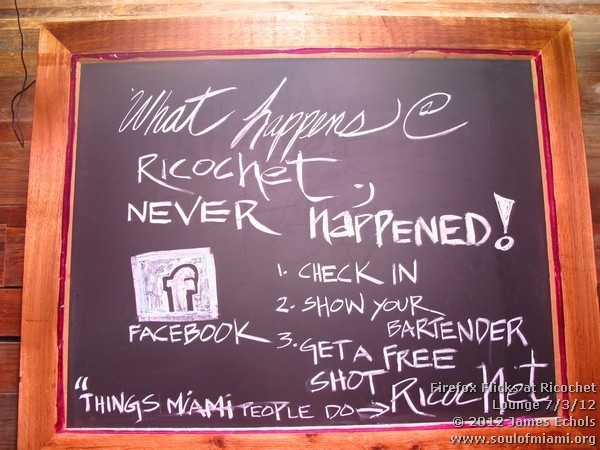 What happens @
RICOCHET.,
NEVER HAPPENED!
f
FACEBOOK
1. CHECK IN
2. SHOW YOUR
BARTENDER
3. GET A FREE
SHOT
"THINGS MiAMi PEOPLE DO → RICOCHET
Firefox Flicks at Ricochet
Lounge 7/3/12
© 2012 James Echols
www.soulofmiami.org